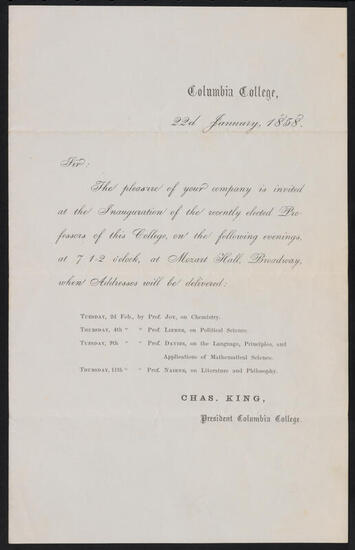 Columbia College,
22d January, 1858.
Sir:
The pleasure of your company is invited
at the Inauguration of the recently elected Pro-
fessors of this College, on the following evenings,
at 7 1-2 o'clock, at Mozart Hall, Broadway,
when Addresses will be delivered:
Tuesday, 2d Feb., by Prof. Joy, on Chemistry.
Thursday, 4th " " Prof. Lieber, on Political Science.
Tuesday, 9th " " Prof. Davies, on the Language, Principles, and
Applications of Mathematical Science.
Thursday, 11th " " Prof. Nairne, on Literature and Philosophy.
CHAS. KING,
President Columbia College.